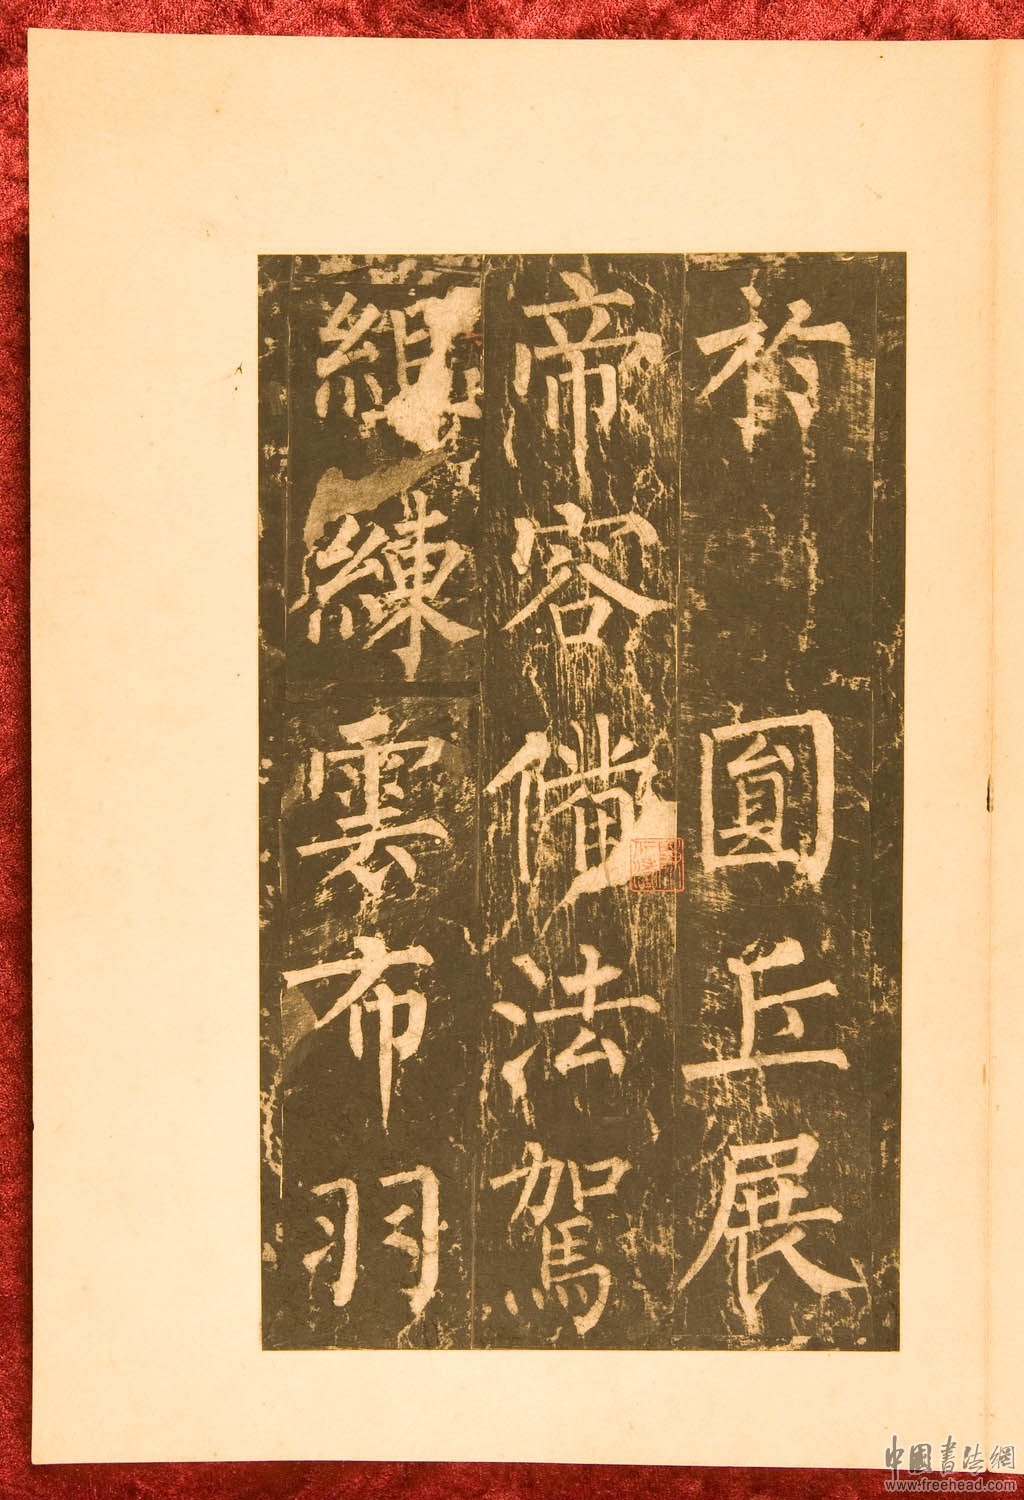 於 圓丘展
帝容備法駕
組練雲布羽
中国书法網
www.freehead.com